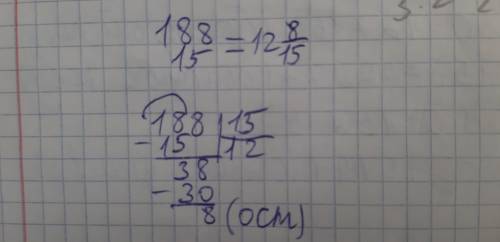 188 8
15 = 12 15
188 15
- 15 12
38
- 30
8 (ост)